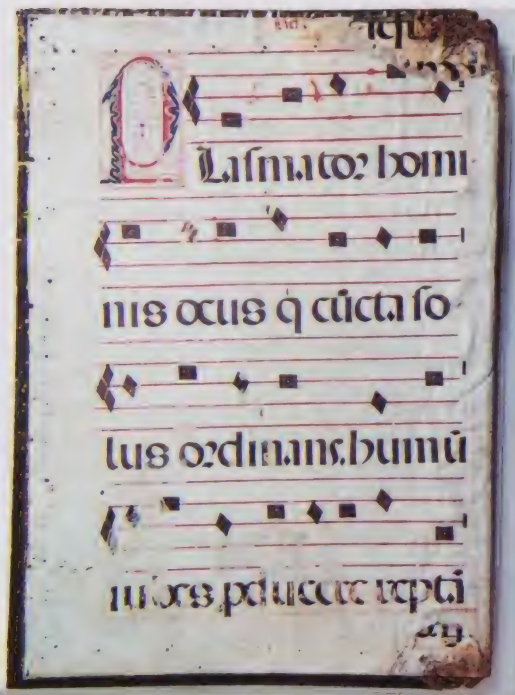 PLasmator homi
nis deus q̇ cūcta so
lus ordinans. humū
iubes pducere repti